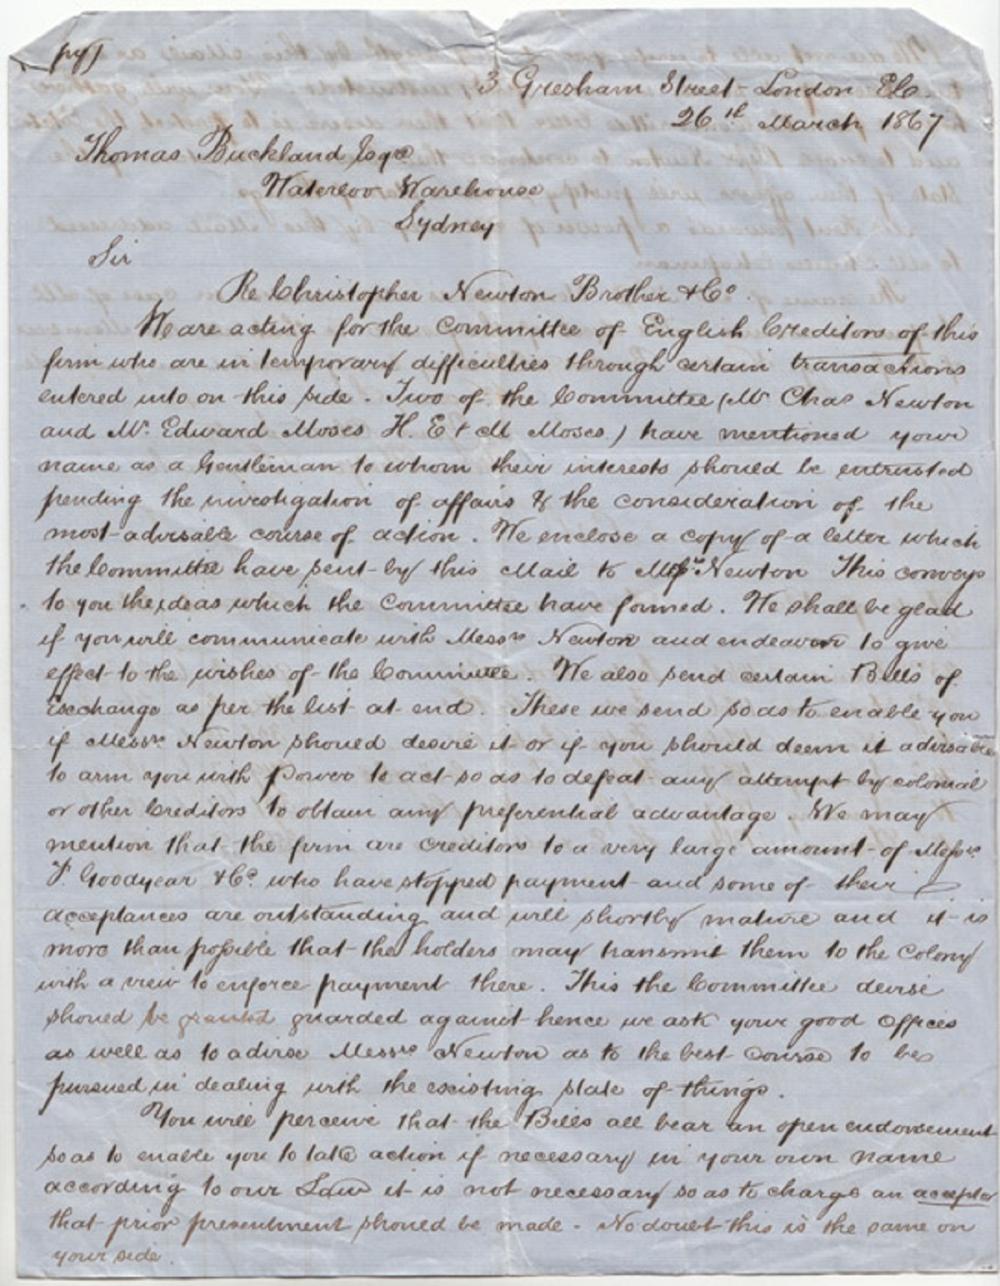 py)
3 Gresham Street - London E.C.
26th March 1867
Thomas Buckland Esqre
Waterloo Warehouse
Sydney
Sir
Re Christopher Newton Brother & Co.
We are acting for the Committee of English Creditors of this
firm who are in temporary difficulties through certain transactions
entered into on this side. Two of the Committee (Mr Chas Newton
and Mr. Edward Moses H. E & M Moses.) have mentioned your
name as a Gentleman to whom their interests should be entrusted
pending the investigation of affairs & the consideration of the
most advisable course of action. We enclose a copy of a letter which
the Committee have sent by this Mail to Messrs Newton This conveys
to you the ideas which the Committee have formed. We shall be glad
if you will communicate with Messrs Newton and endeavour to give
effect to the wishes of the Committee. We also send certain Bills of
Exchange as per the list at end. These we send so as to enable you
if Messrs Newton should desire it or if you should deem it advisable
to arm you with Power to act so as to defeat any attempt by colonial
or other Creditors to obtain any preferential advantage. We may
mention that the firm are creditors to a very large amount of Messrs
F. Goodyear & Co. who have stopped payment and some of their
acceptances are outstanding and will shortly mature and it is
more than possible that the holders may transmit them to the Colony
with a view to enforce payment there. This the Committee desire
should be guarded against hence we ask your good Offices
as well as to advise Messrs Newton as to the best course to be
pursued in dealing with the existing state of things.
You will perceive that the Bills all bear an open endorsement
so as to enable you to take action if necessary in your own name
according to our Law it is not necessary so as to charge an acceptor
that prior presentment should be made - No doubt this is the same on
your side.